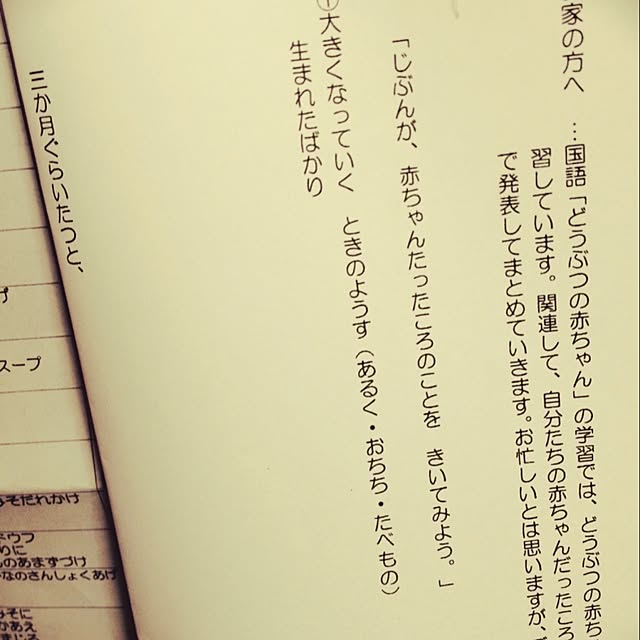 家の方へ …国語「どうぶつの赤ちゃん」の学習では、どうぶつの赤ち
習しています。関連して、自分たちの赤ちゃんだったころ
で発表してまとめていきます。お忙しいとは思いますが、
「じぶんが、赤ちゃんたったころのことを きいてみよう。」
①大きくなっていく ときのようす(あるく・おちち・たべもの)
生まれたばかり
三か月ぐらいたつと、
スープ
みそだれかけ
のあまずづけ
なのさんしょくあげ
みそに